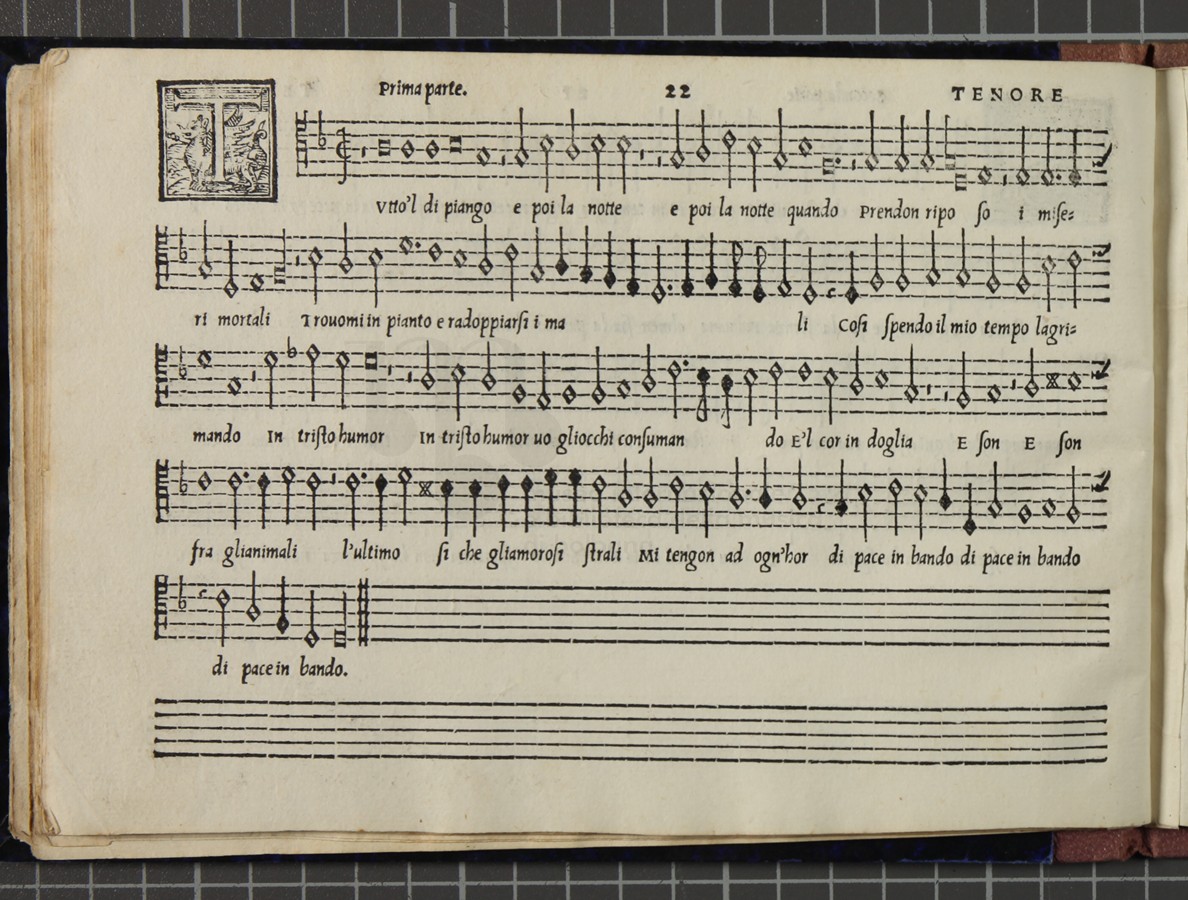 Prima parte. 22 TENORE
T
Vtto'l di piango e poi la notte e poi la notte quando Prendon ripo so i mise=
ri mortali Trouomi in pianto e radoppiarsi i ma li Cosi spendo il mio tempo lagri=
mando In tristo humor In tristo humor uo gliocchi consuman do E'l cor in doglia E son E son
fra glianimali l'ultimo si che gliamorosi strali Mi tengon ad ogn'hor di pace in bando di pace in bando
di pace in bando.